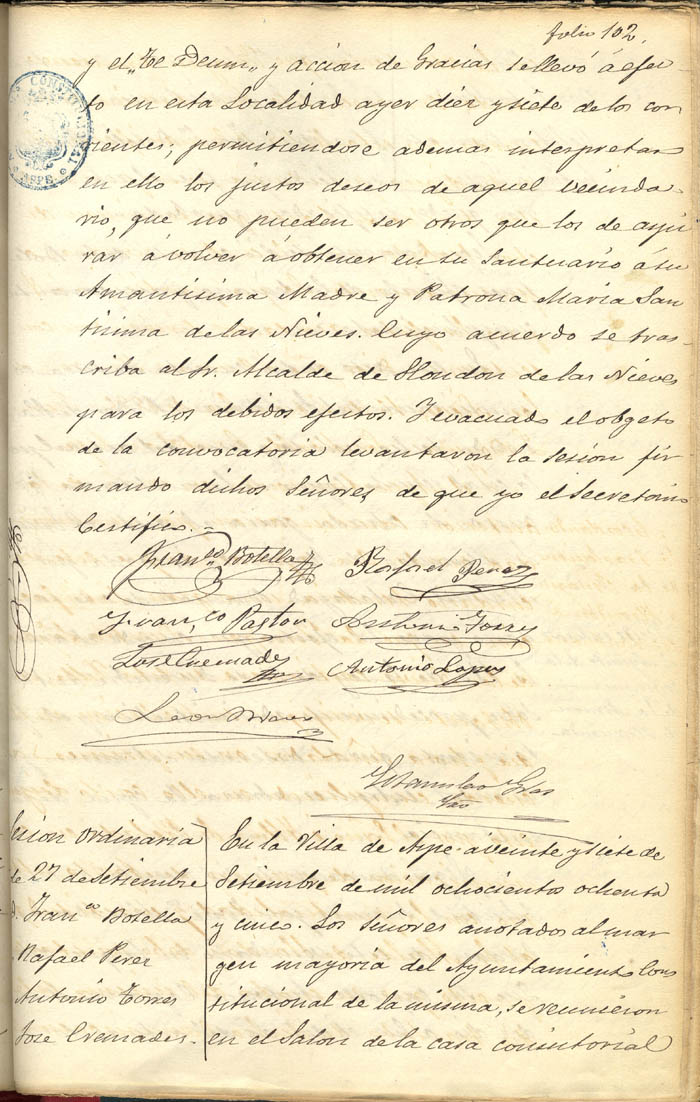 folio 102.
y el „Te Deum„ y acción de Gracias se llevó á efec-
to en esta Localidad ayer diez y siete de los cor-
rientes; permitiendose ademas interpretar
en ello los justos deseos de aquel vecinda-
rio, que no pueden ser otros que los de
rar á volver á obtener en su Santuario á su
Amantisima Madre y Patrona Maria San-
tisima de las Nieves. Cuyo acuerdo se tras-
criba al Sr. Alcalde de Hondon de las Nieves
para los debidos efectos. Y evacuado el obgeto
de la convocatoria levantaron la sesion fir-
mando dichos Señores, de que yo el Secretario
Certifico.=
Fran.co Botella
Rafael Perez
Fran.co Pastor
Antonio Torres
Jose Cremades
Antonio Lopez
Leon
Estanislao
Srio
Sesion ordinaria
de 27 de Setiembre
D. Fran.co Botella
Rafael Perez
Antonio Torres
Jose Cremades.
En la Villa de Aspe á veinte y siete de
Setiembre de mil ochocientos ochenta
y cinco. Los Señores anotados al mar-
gen mayoria del Ayuntamiento Cons-
titucional de la misma, se reunieron
en el Salon de la casa consistorial